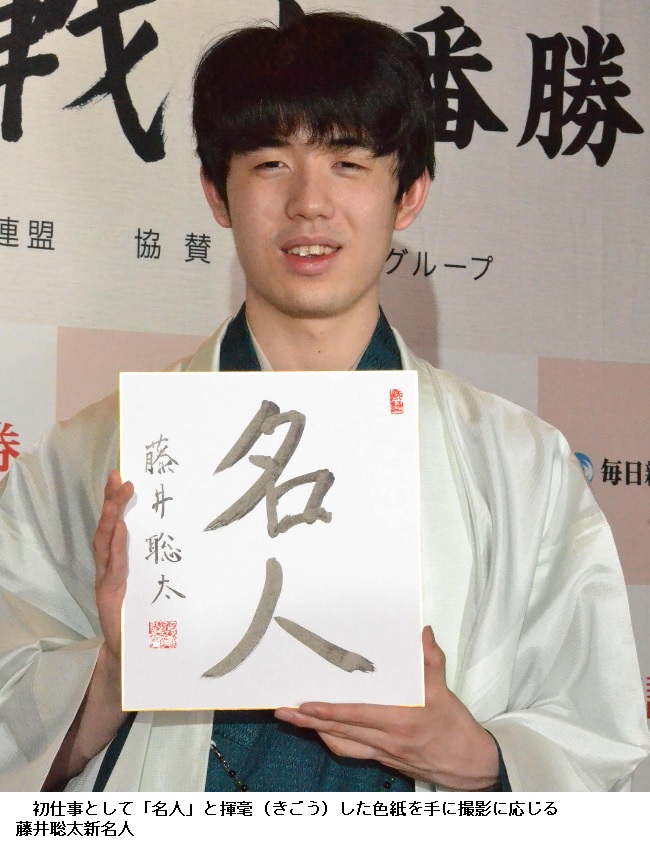 戦 番勝
連盟 協賛 グループ
毎日新
名人
藤井聡太
初仕事として「名人」と揮毫（きごう）した色紙を手に撮影に応じる
藤井聡太新名人